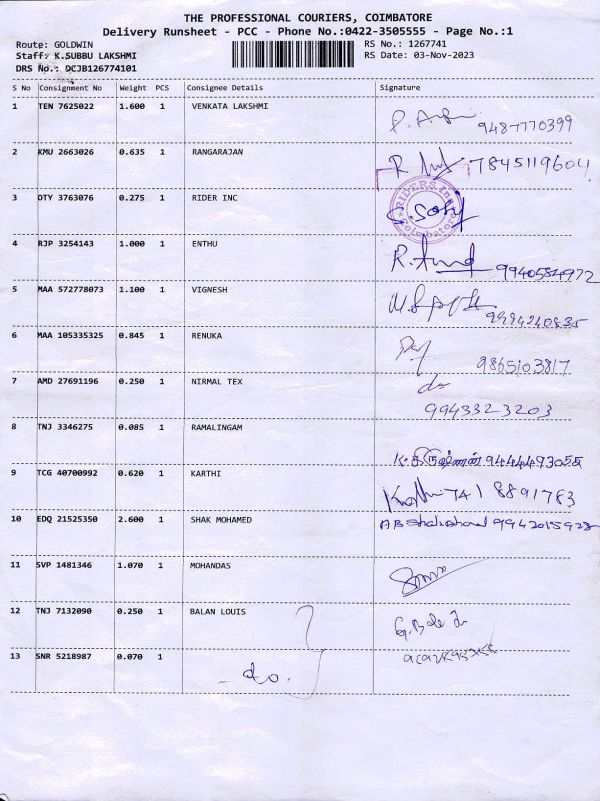 THE PROFESSIONAL COURIERS, COIMBATORE
Delivery Runsheet - PCC - Phone No.:0422-3505555 - Page No.:1
Route: GOLDWIN RS No.: 1267741
Staff: K.SUBBU LAKSHMI RS Date: 03-Nov-2023
DRS No.: DCJB126774101
S No Consignment No Weight PCS Consignee Details Signature
1 TEN 7625022 1.600 1 VENKATA LAKSHMI
9487770399
2 KMU 2663026 0.635 1 RANGARAJAN
7845119604
3 OTY 3763076 0.275 1 RIDER INC
RIDERS Inc Coimbatore
4 RJP 3254143 1.000 1 ENTHU
9940584972
5 MAA 572778073 1.100 1 VIGNESH
9994240835
6 MAA 105335325 0.845 1 RENUKA
9865103817
7 AMD 27691196 0.250 1 NIRMAL TEX
9943323203
8 TNJ 3346275 0.085 1 RAMALINGAM
9444493055
9 TCG 40700992 0.620 1 KARTHI
741 8891783
10 EDQ 21525350 2.600 1 SHAK MOHAMED
9942015928
11 SVP 1481346 1.070 1 MOHANDAS
12 TNJ 7132090 0.250 1 BALAN LOUIS
13 SNR 5218987 0.070 1 - do.